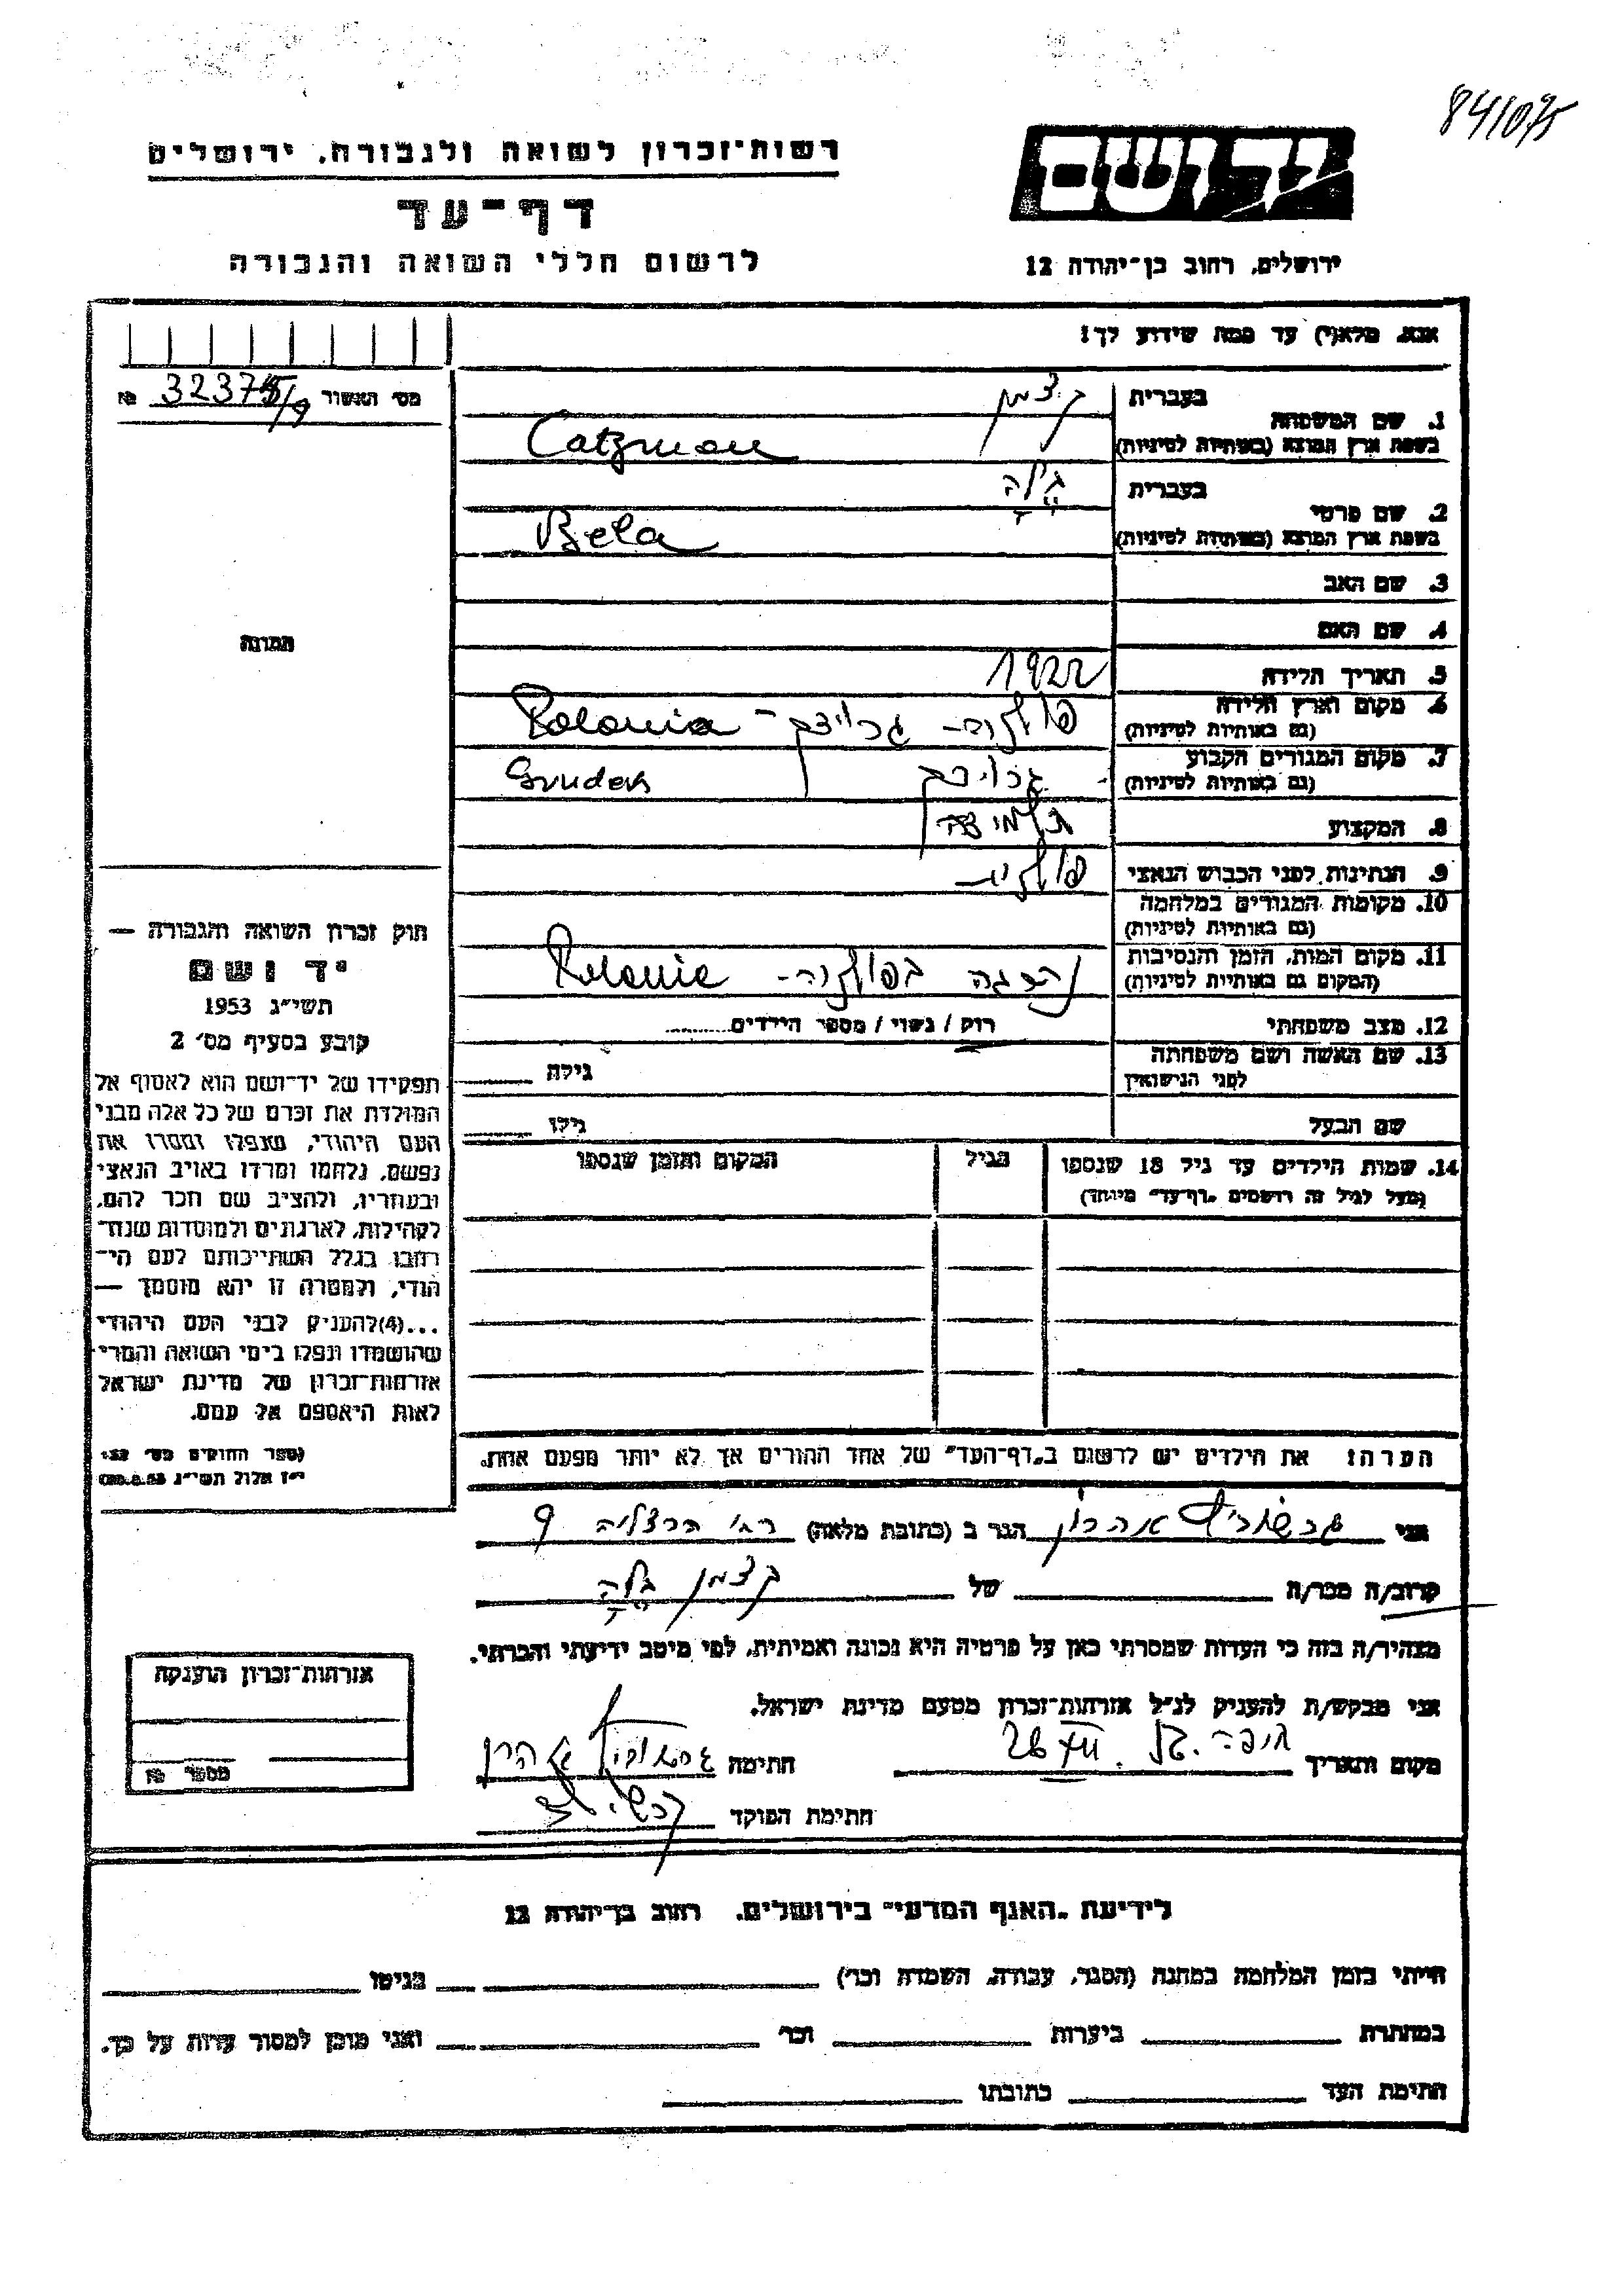 84/075
רשות־זכרון לשואה ולגבורה, ירושלים
דף־עד
לרשום חללי השואה והגבורה
יד ושם
ירושלים, רחוב בן־יהודה 12
אנא, מלא(י) עד כמה שידוע לך!
מס׳ האשור № 32375/9
1. שם המשפחה
בעברית קצמן
בשפת ארץ המוצא (באותיות לטיניות) Catzman
2. שם פרטי
בעברית בילה
בשפת ארץ המוצא (באותיות לטיניות) Bela
3. שם האב
4. שם האם
5. תאריך הלידה 1922
6. מקום וארץ הלידה
(גם באותיות לטיניות) פולניה - Polonia
7. מקום המגורים הקבוע
(גם באותיות לטיניות) Grudek
8. המקצוע תלמידה
9. הנתינות לפני הכבוש הנאצי פולנית
10. מקומות המגורים במלחמה
(גם באותיות לטיניות)
11. מקום המות, הזמן והנסיבות
(המקום גם באותיות לטיניות) נהרגה בפולניה - Polonia
12. מצב משפחתי רוק / נשוי / מספר הילדים
13. שם האשה ושם משפחתה
לפני הנישואין גילה
שם הבעל גילו
14. שמות הילדים עד גיל 18 שנספו הגיל המקום והזמן שנספו
(מעל לגיל זה רושמים „דף־עד" מיוחד)
הערה: את הילדים יש לרשום ב„דף־העד" של אחד ההורים אך לא יותר מפעם אחת.
התמונה
חוק זכרון השואה והגבורה —
יד ושם
תשי״ג 1953
קובע בסעיף מס׳ 2
תפקידו של יד־ושם הוא לאסוף אל
המולדת את זכרם של כל אלה מבני
העם היהודי, שנפלו ומסרו את
נפשם, נלחמו ומרדו באויב הנאצי
ובעוזריו, ולהציב שם וזכר להם,
לקהילות, לארגונים ולמוסדות שנח־
רבו בגלל השתייכותם לעם הי־
הודי, ולמטרה זו יהא מוסמך —
...(4) להעניק לבני העם היהודי
שהושמדו ונפלו בימי השואה והמרי
אזרחות־זכרון של מדינת ישראל
לאות היאספם אל עמם.
(ספר החוקים מס׳ 132
י״ז אלול תשי״ג 28.8.53)
אני אהרון הגר ב (כתובת מלאה) רח׳ הרצליה 9
קרוב/ה מכר/ה של קצמן בילה
מצהיר/ה בזה כי העדות שמסרתי כאן על פרטיה היא נכונה ואמיתית, לפי מיטב ידיעתי והכרתי.
אני מבקש/ת להעניק לנ״ל אזרחות־זכרון מטעם מדינת ישראל.
מקום ותאריך חיפה חתימה אהרן
חתימת הפוקד
אזרחות־זכרון הוענקה
מספר №
לידיעת „האגף המדעי" בירושלים, רחוב בן־יהודה 12
הייתי בזמן המלחמה במחנה (הסגר, עבודה, השמדה וכר׳) בגיטו
במחתרת ביערות וכר׳ ואני מוכן למסור עדות על כך.
חתימת העד כתובתו